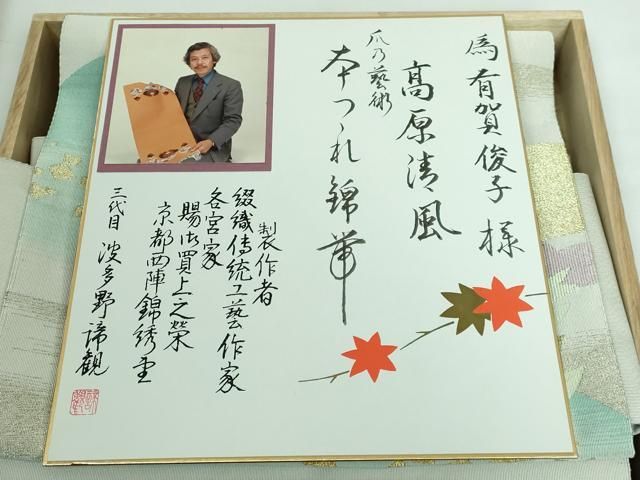 為有賀俊子様
高原清風
爪乃藝術
本つゞれ錦華
製作者
綴織傳統工藝作家
各宮家
賜御買上之榮
京都西陣錦綉堂
三代目 波多野諦観